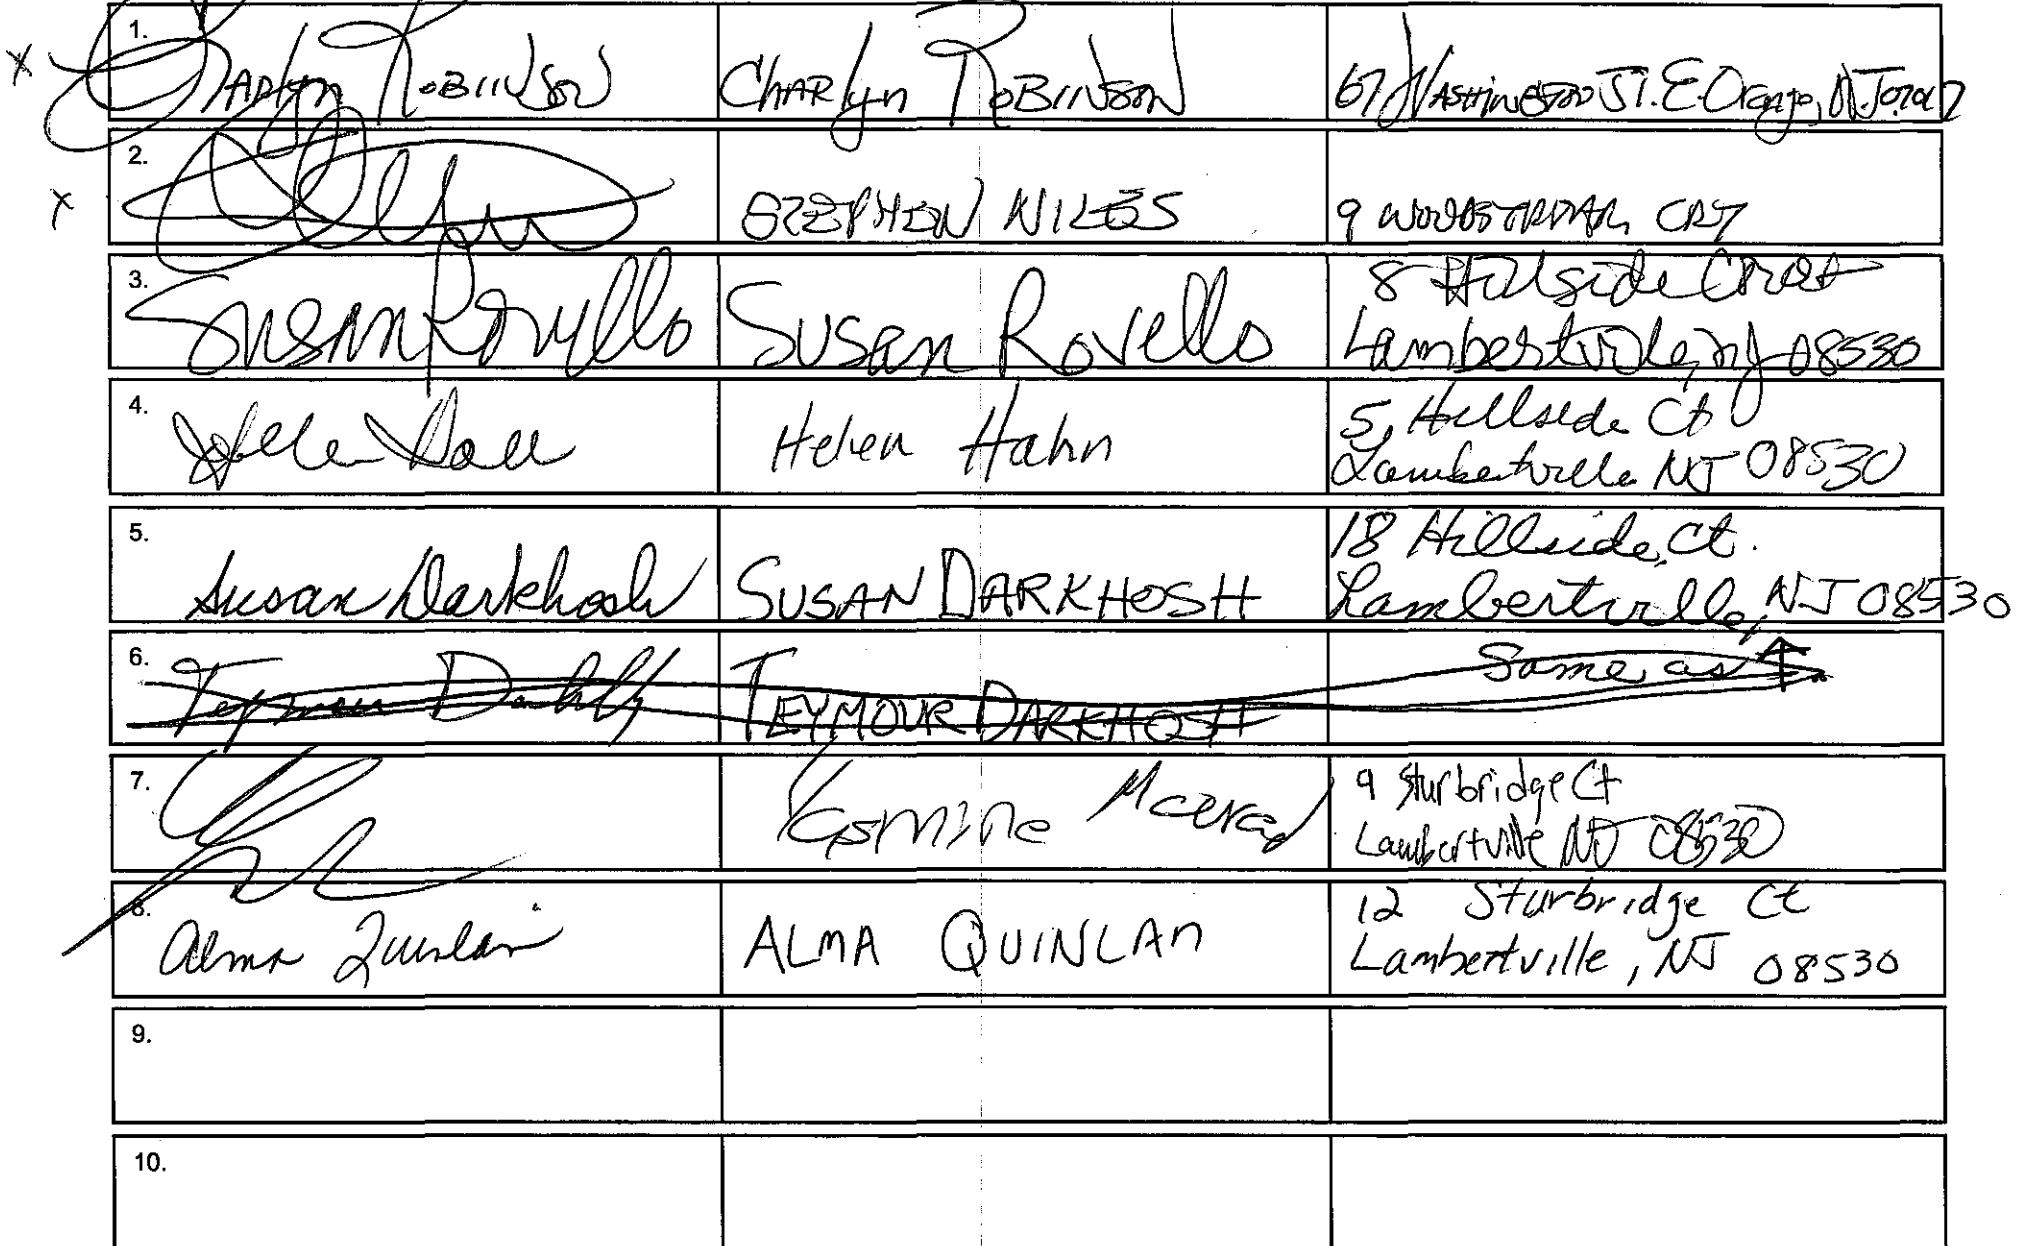 x 1. Charlyn Robinson Charlyn Robinson 67 Washington St. E. Orange, N.J. 07017
x 2. STEPHEN NILES 9 CRT
3. Susan Rovello Susan Rovello 8 Hillside Court
Lambertville, NJ 08530
4. Helen Hahn Helen Hahn 5 Hillside Ct
Lambertville NJ 08530
5. Susan Darkhosh SUSAN DARKHOSH 18 Hillside, Ct.
Lambertville, NJ 08530
6. TEYMOUR DARKHOSH Same as ↑
7. Yasmine 9 Sturbridge Ct
Lambertville NJ 08530
8. Alma Quinlan ALMA QUINLAN 12 Sturbridge Ct
Lambertville, NJ 08530
9.
10.